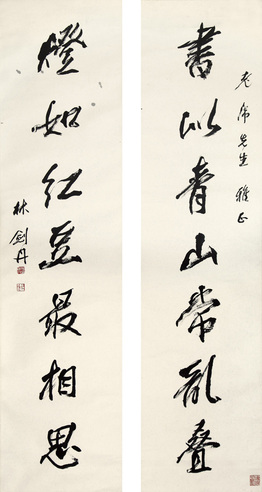 老先生雅正
書似青山常亂疊
燈如紅豆最相思
林劍丹